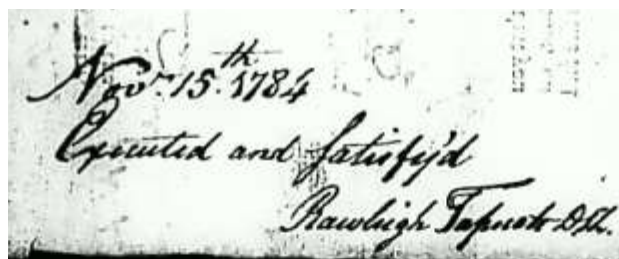 Novr. 15th. 1784
Executed and Satisfy'd
Rawleigh Tapscott D Sh.